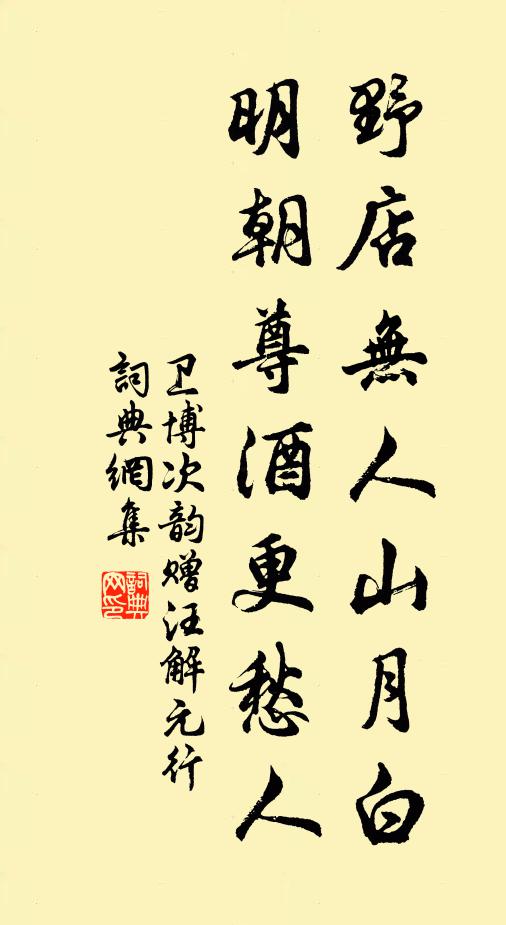 野店無人山月白
明朝尊酒更愁人
卫博次韵赠汪解元行
詞典網集
詞典網印